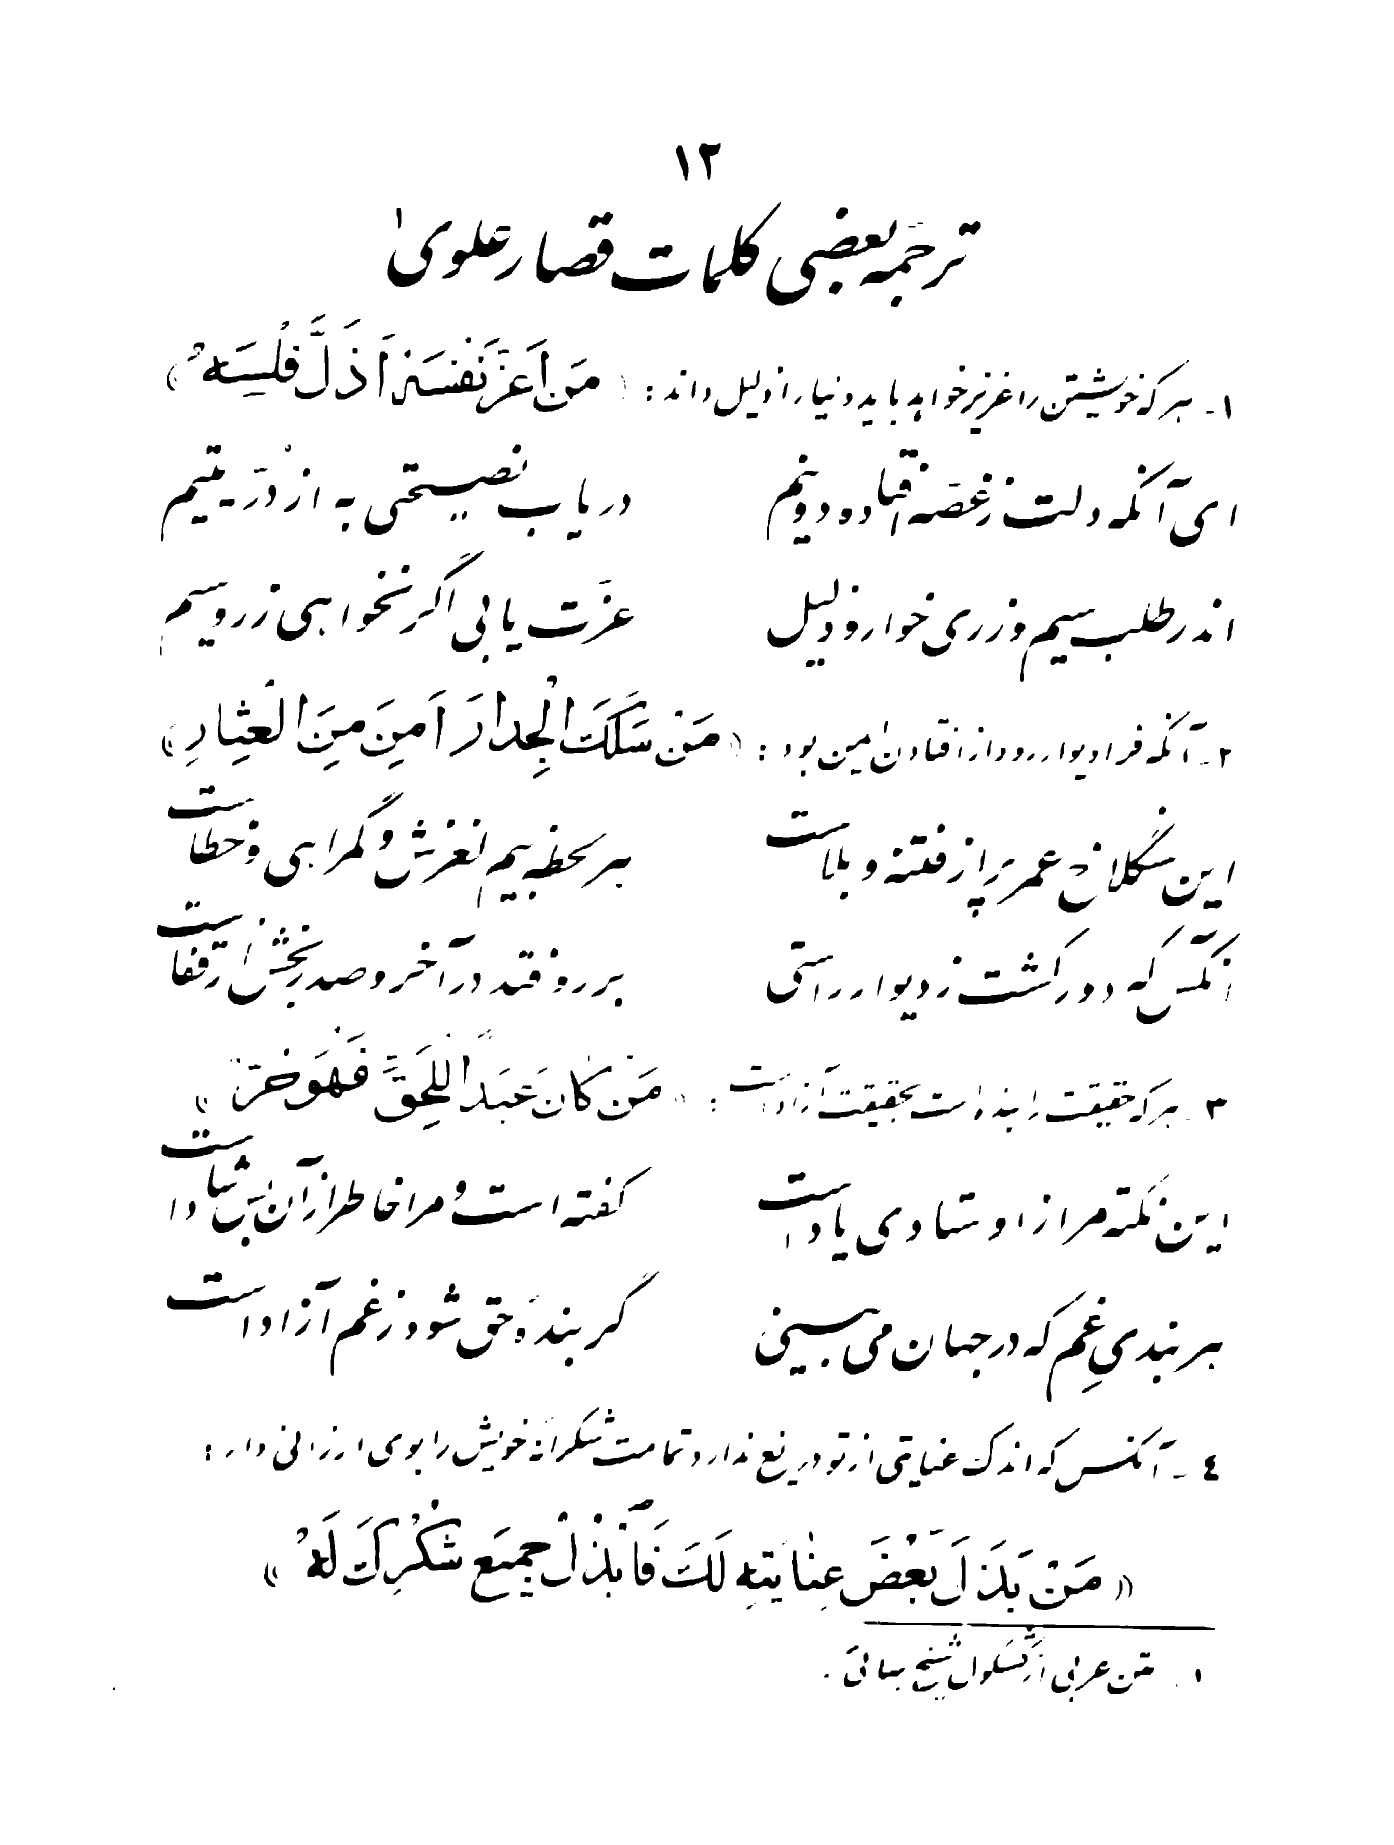 ۱۲
ترجمه بعضی کلمات قصار علوی۱
۱- هر که خویشتن را عزیز خواهد باید دنیا را ذلیل داند: «مَن اَعَزَّ نَفْسَهُ اَذَلَّ فَلْسَهُ»
ای آنکه دلت ز غصه افتاده دو نیم دریاب نصیحتی به از دُرّ یتیم
اندر طلب سیم و زری خوار و ذلیل عزّت یابی اگر نخواهی زر و سیم
۲- آنکه فرا دیوار رود از افتادن امین بود: «مَنْ سَلَکَ الْجِدارَ اَمِنَ مِنَ الْعِثارِ»
این سنگلاخ عمر پر از فتنه و بلاست هر لحظه بیم لغزش و گمراهی و خطاست
آنکس که دور گشت ز دیوار راستی بر رو فتد در آخر و صد رنجش از قفاست
۳- هر که حقیقت را بنده است بحقیقت آزاد است: «مَنْ کانَ عَبْداً لِلْحَقِّ فَهُوَ حُرٌّ»
این نکته مرا ز اوستادی یاد است گفته است و مرا خاطر از آن بس شاد است
هر بندیِ غم که در جهان می بینی گر بندهٔ حق شود ز غم آزاد است
٤- آنکس که اندک عنایتی از تو دریغ ندارد تمامت شکرانهٔ خویش را بوی ارزانی دار:
«مَنْ بَذَلَ بَعْضَ عِنایَتِهِ لَکَ فَابْذُلْ جَمیعَ شُکْرِکَ لَهُ»
۱- متن عربی از کشکول شیخ بهائی.